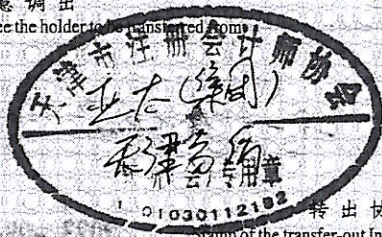 意调出
ce the holder to be transferred from
天津市注册会计师协会
亚太(集团)
天津分所
专用章
1201030112192
转出协
Stamp of the transfer-out In